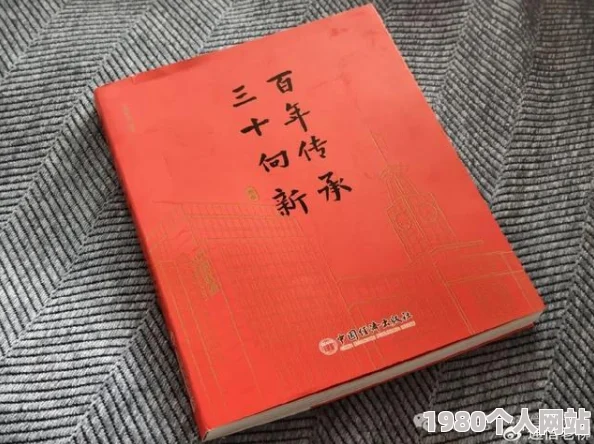 百年传承
三十向新
中国经济出版社
1980个人网站